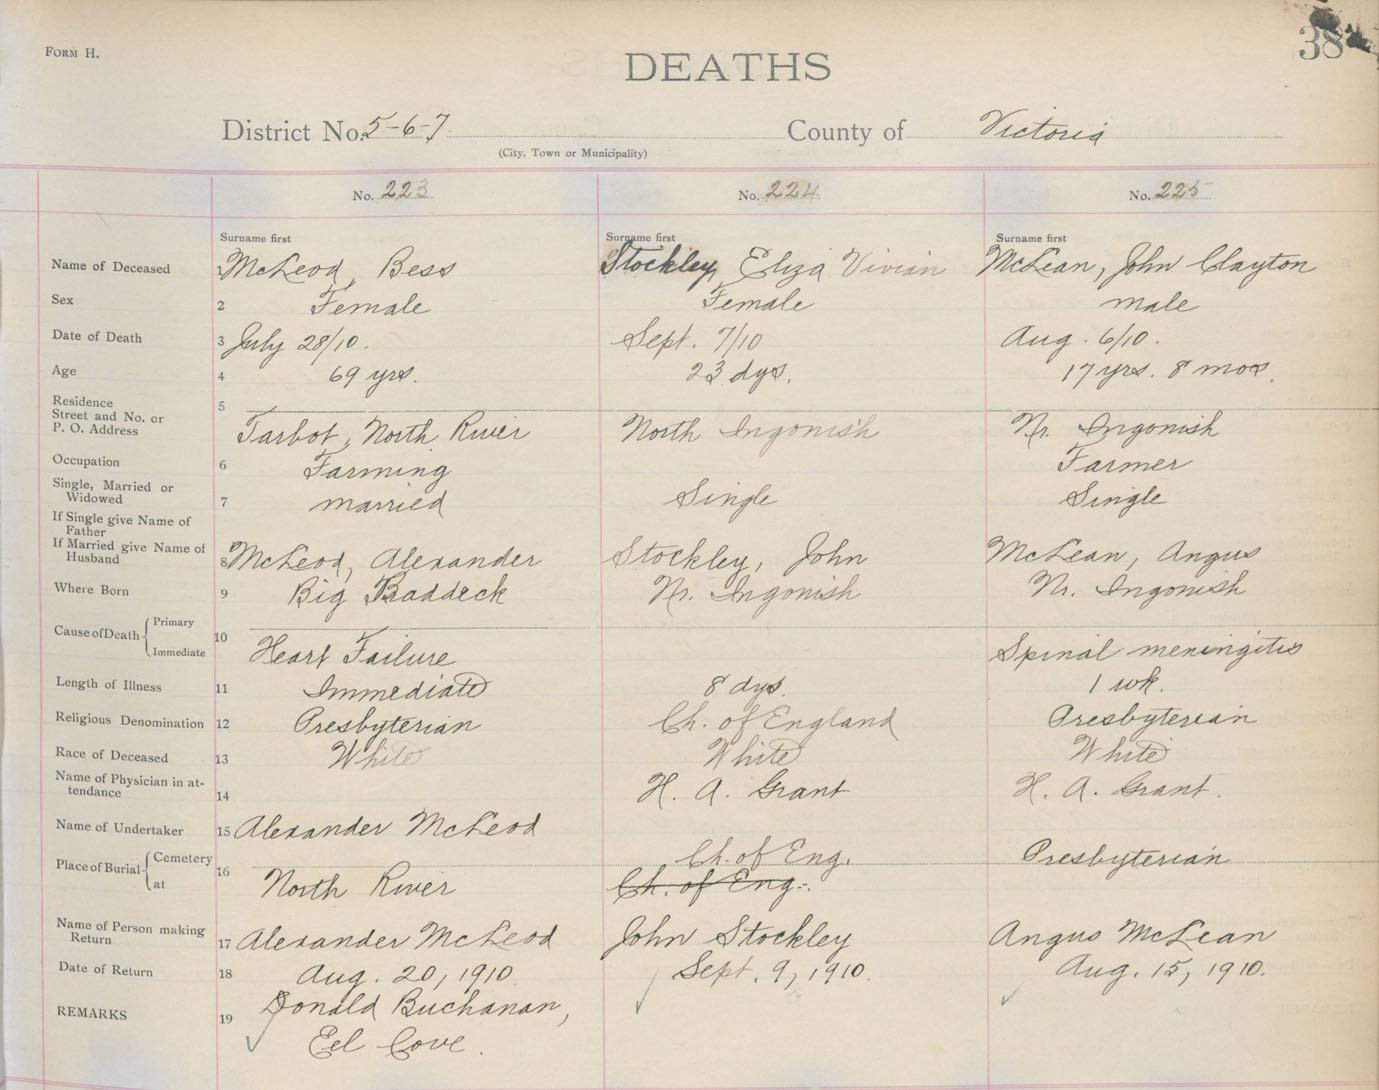 38
FORM H.
DEATHS
District No. 5-6-7. County of Victoria
(City, Town or Municipality)
No. 223 No. 224 No. 225
Surname first Surname first Surname first
Name of Deceased 1 McLeod, Bess Stockley, Eliza Vivian McLean, John Clayton
Sex 2 Female Female male
Date of Death 3 July 28/10. Sept. 7/10 Aug. 6/10.
Age 4 69 yrs. 23 dys. 17 yrs. 8 mos.
Residence 5
Street and No. or
P. O. Address Tarbot, North River North Ingonish Nr. Ingonish
Occupation 6 Farming Farmer
Single, Married or
Widowed 7 married Single Single
If Single give Name of
Father
If Married give Name of
Husband 8 McLeod, Alexander Stockley, John McLean, Angus
Where Born 9 Big Baddeck Nr. Ingonish Nr. Ingonish
Cause of Death { Primary 10
Immediate Heart Failure Spinal meningitis
Length of Illness 11 Immediate 8 dys. 1 wk.
Religious Denomination 12 Presbyterian Ch. of England Presbyterian
Race of Deceased 13 White White White
Name of Physician in at-
tendance 14 H. A. Grant H. A. Grant.
Name of Undertaker 15 Alexander McLeod
Place of Burial { Cemetery 16 Ch. of Eng. Presbyterian
at North River Ch. of Eng.
Name of Person making
Return 17 Alexander McLeod John Stockley Angus McLean
Date of Return 18 Aug. 20, 1910 Sept. 9, 1910. Aug. 15, 1910.
REMARKS 19 Donald Buchanan,
Eel Cove.